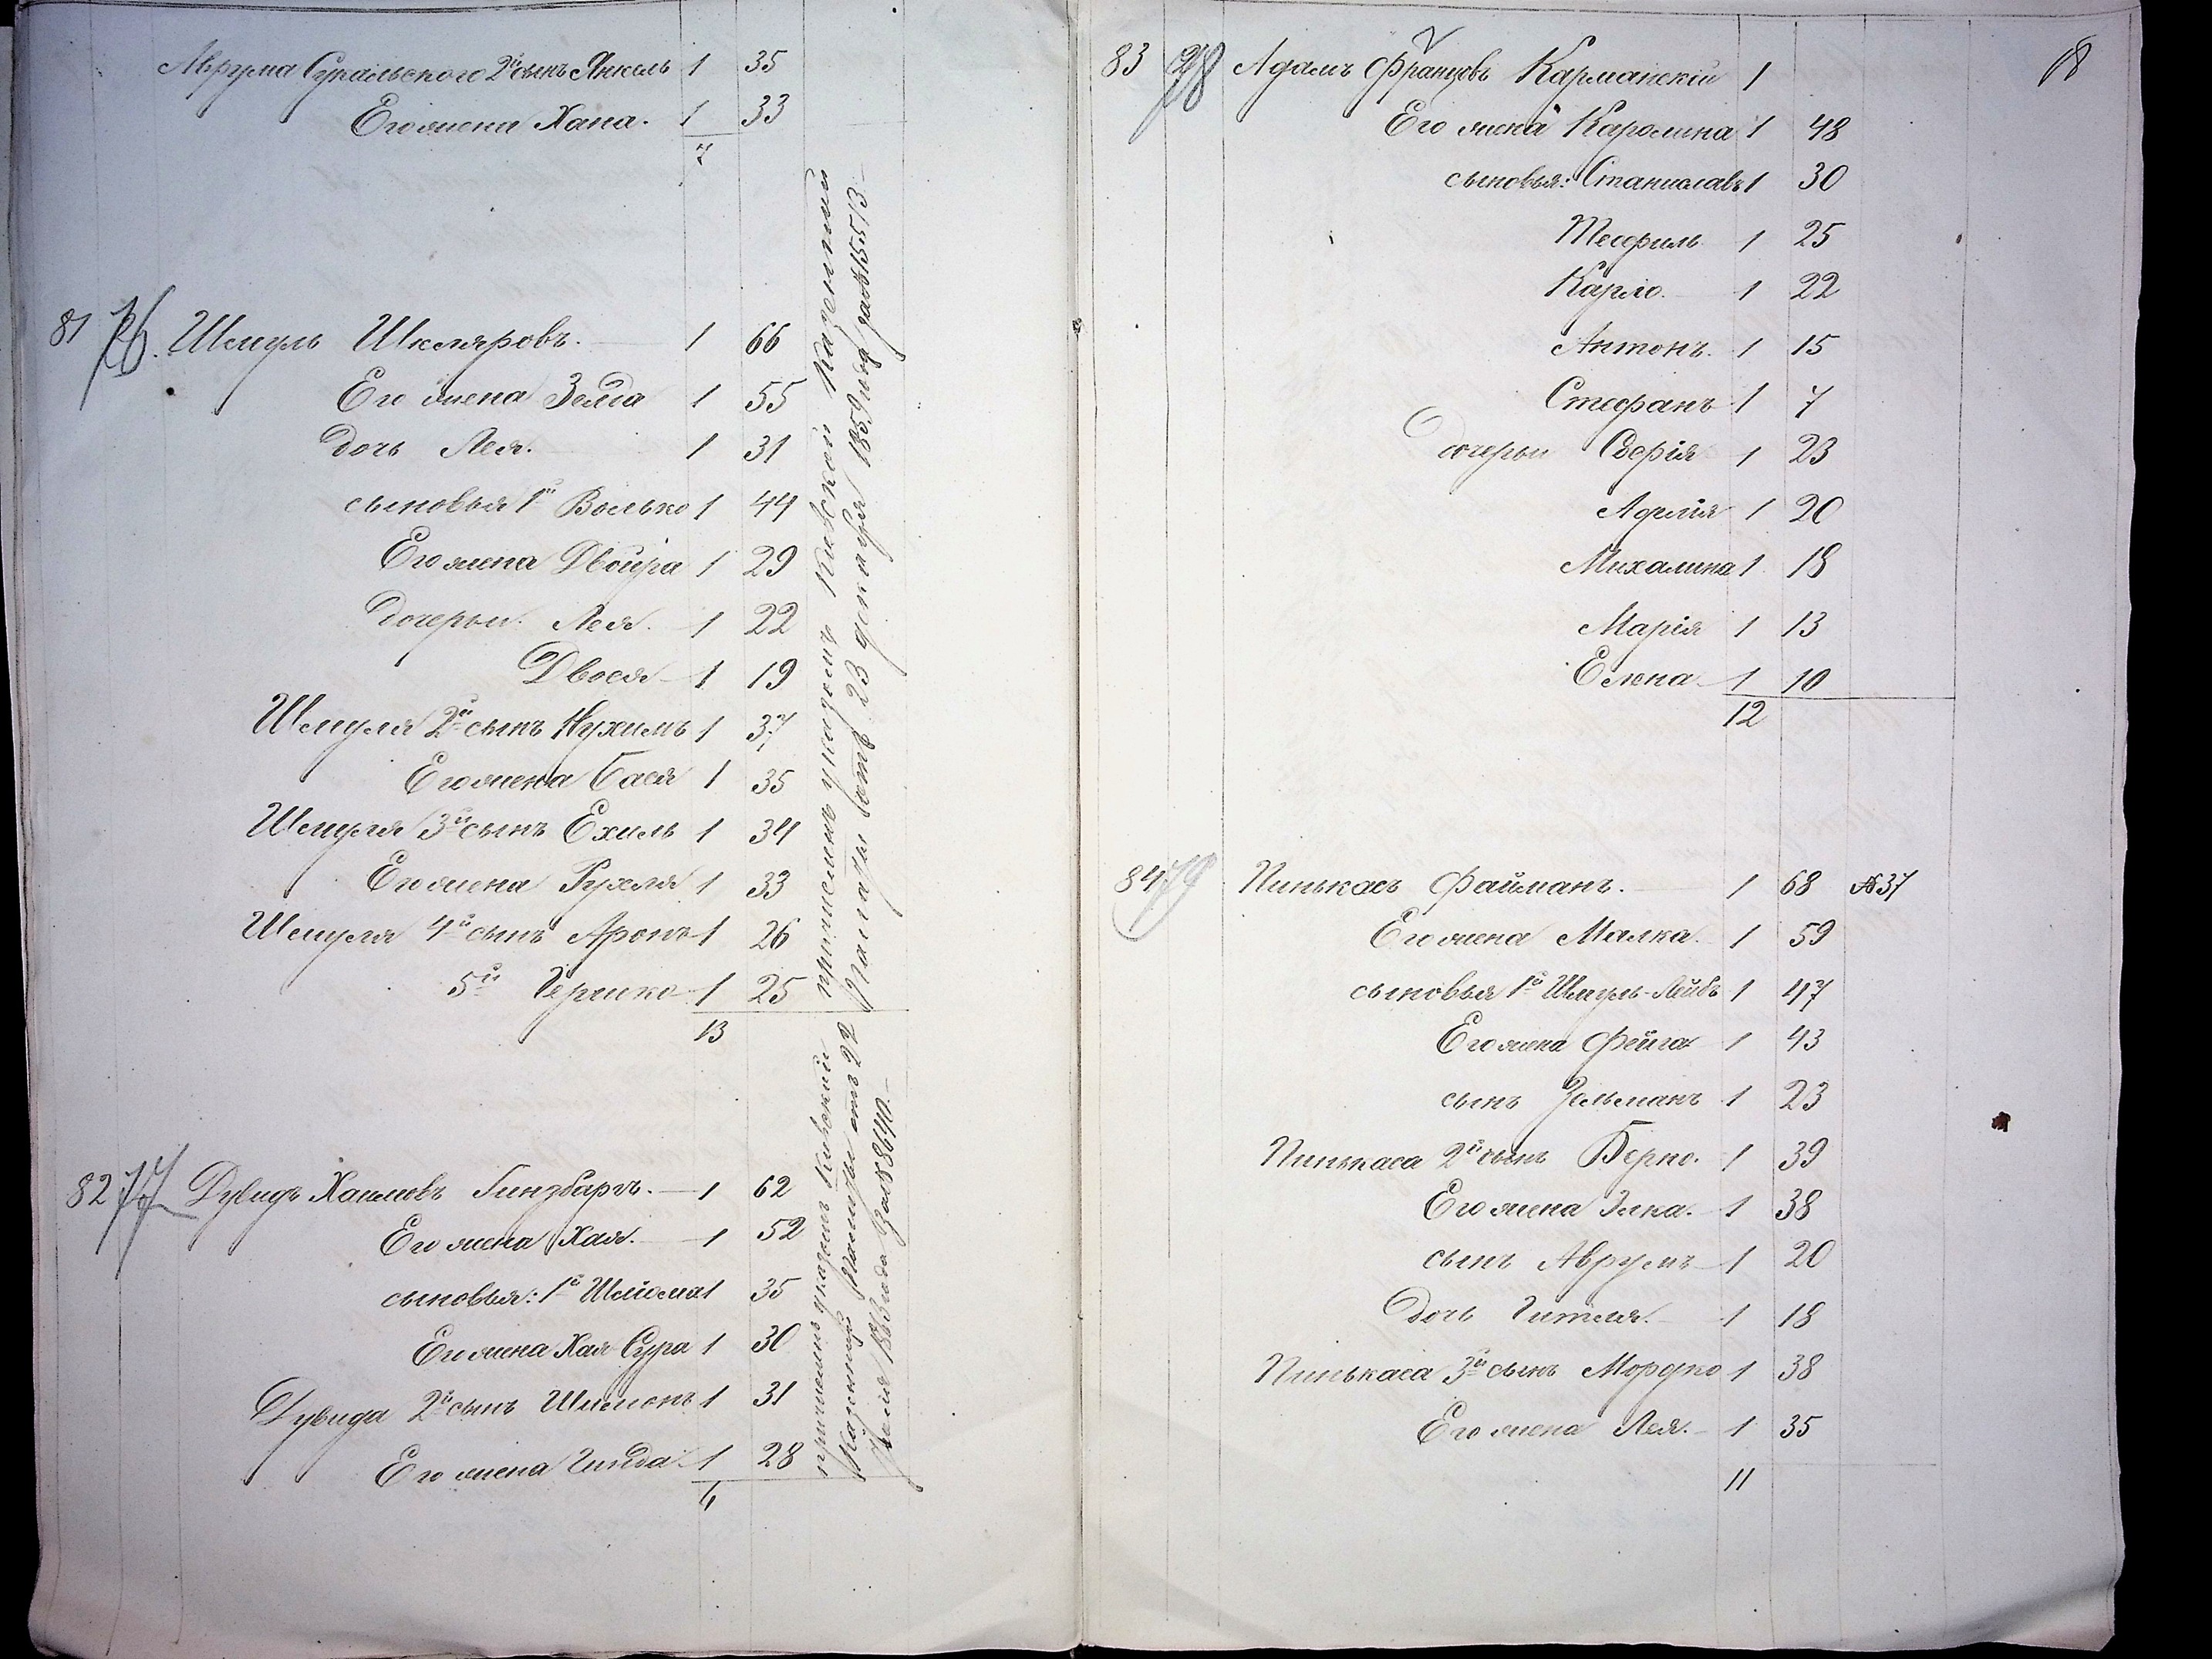 Аврума Сукальского 2й сынъ Янкель 1 35
Его жена Хана. 1 33
7
81 76. Шмуль Шкляровъ. 1 66
Его жена Зелда 1 55
дочь Лея. 1 31
сыновья 1й Волько 1 44
Его жена Двойра 1 29
дочери Лея. 1 22
Двося 1 19
Шмуля 2й сынъ Нухимъ 1 37
Его жена Бася 1 35
Шмуля 3й сынъ Ехиль 1 34
Его жена Рухля 1 33
Шмуля 4й сынъ Аронъ 1 26
5й Гершко 1 25
13
причисленъ указомъ Кіевской Казенной
Палаты отъ 23 декабря 1859 года за № 15513.
82 77 Дувидъ Хаимовъ Гинзбаргъ. 1 62
Его жена Хая. 1 52
сыновья: 1й Шлиома 1 35
Его жена Хая Сура 1 30
Дувида 2й сынъ Шимонъ 1 31
Его жена Гинда 1 28
6
причисленъ указомъ Кіевской
Казенной Палаты отъ 22
года за № 8640.
18
83 78 Адамъ Францовъ Карманскій 1
Его жена Каролина 1 48
сыновья: Станиславъ 1 30
Теофиль 1 25
Карло. 1 22
Антонъ. 1 15
Стефанъ 1 7
дочери Софія 1 23
Аделія 1 20
Михалина 1 18
Марія 1 13
Елена 1 10
12
84 79 Пинькасъ Файманъ. 1 68 №37
Его жена Малка. 1 59
сыновья 1й Шмуль-Лейбъ 1 47
Его жена Фейга 1 43
сынъ Зельманъ 1 23
Пинькаса 2й сынъ Берко. 1 39
Его жена Элка. 1 38
сынъ Аврумъ 1 20
дочь Гителя. 1 18
Пинькаса 3й сынъ Мордко 1 38
Его жена Лея. 1 35
11